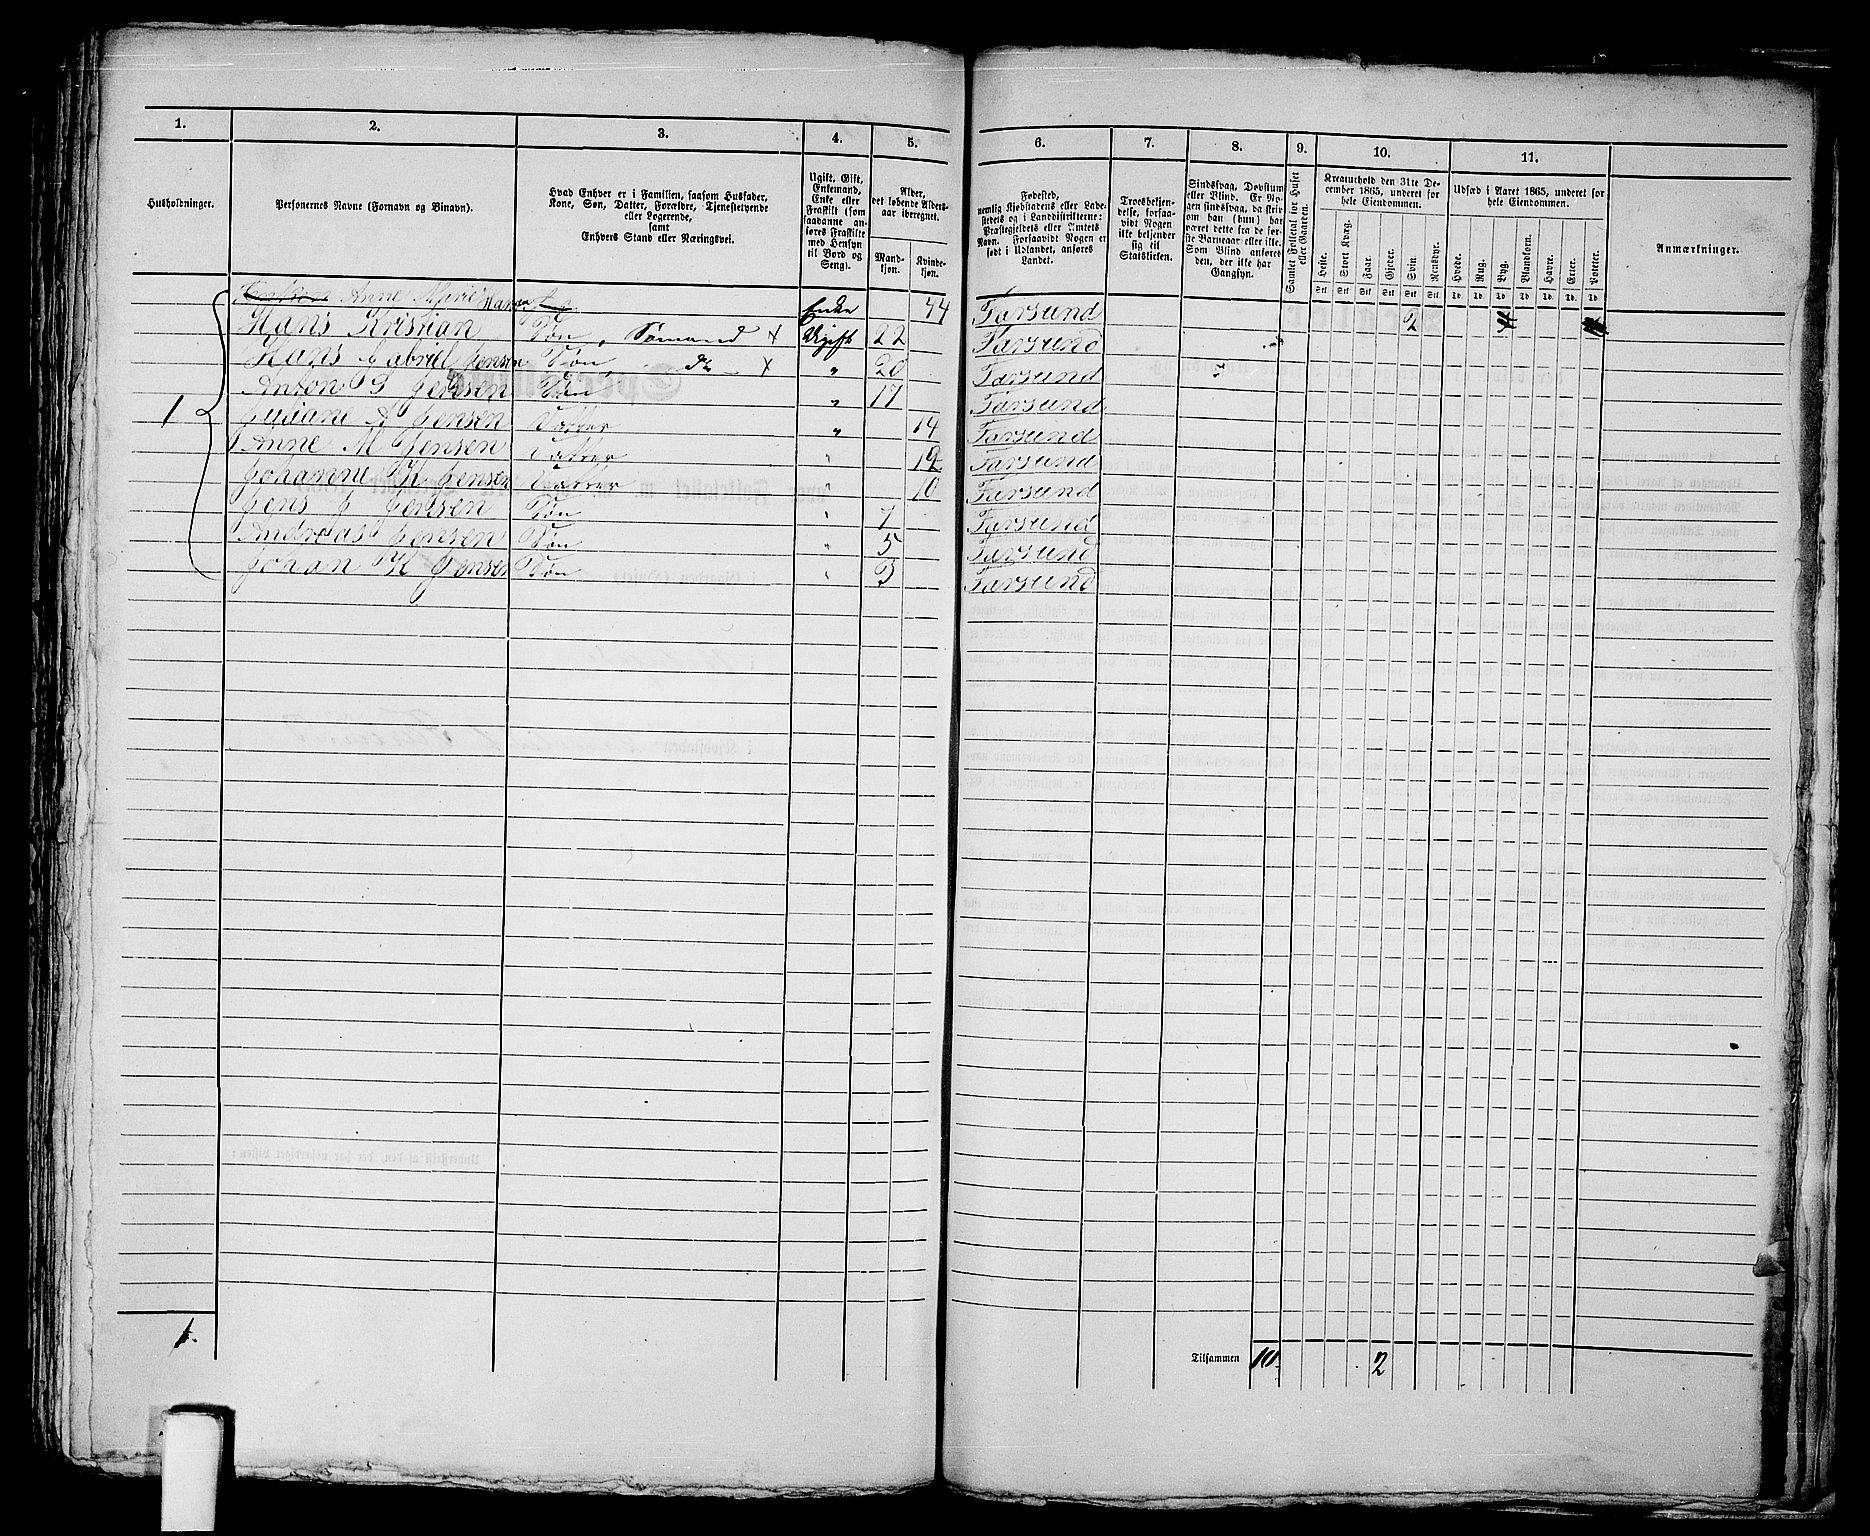 1. 2. 3. 4. 5. 6. 7. 8. 9. 10. 11.
Husholdninger.
Personernes Navne (Fornavn og Binavn).
Hvad Enhver er i Familien, saasom Husfader,
Kone, Søn, Datter, Forældre, Tjenestetyende
eller Logerende,
samt
Enhvers Stand eller Næringsvei.
Ugift, Gift,
Enkemand,
Enke eller
Fraskilt (som
saadanne an-
føres Fraskilte
med Hensyn
til Bord og
Seng).
Alder,
det løbende Alders-
aar iberegnet.
Mand-
kjøn.
Kvinde-
kjøn.
Fødested,
nemlig Kjøbstadens eller Lade-
stedets og i Landdistrikterne:
Præstegjeldets eller Amtets
Navn. Forsaavidt Nogen er
født i Udlandet, anføres
Landet.
Troesbekjen-
delse, forsaa-
vidt Nogen
ikke bekjender
sig til
Statskirken.
Sindssvag, Døvstum
eller Blind. Er No-
gen sindssvag, da skriv-
om han (hun) har
været dette fra de før-
ste Barneaar eller ikke.
Som Blind anføres
den, der ikke har
Gangsyn.
Samlet Folketal for Huset
eller Gaarden.
Kreaturhold den 31te De-
cember 1865, underet for
hele Eiendommen.
Heste. Stort Kvæg. Faar. Gjeder. Svin. Rensdyr.
Stk Stk Stk Stk Stk Stk
Udsæd i Aaret 1865, underet for
hele Eiendommen.
Hvede. Rug. Byg. Blandkorn. Havre. Erter. Poteter.
Td. Td. Td. Td. Td. Td. Td.
Anmærkninger.
Anne Marie Enke 44 Farsund 2
Hans Kristian Søn, Sømand x Ugift 22 Farsund
Hans Gabriel Jensen Søn, do x " 20 Farsund
Anton S Jensen Søn " 17 Farsund
Juliane A Jensen Datter " 14 Farsund
1 Anne M Jensen Datter " 12 Farsund
Johanne K Jensen Datter " 10 Farsund
Jens J Jensen Søn " 7 Farsund
Andreas Jensen Søn " 5 Farsund
Johan K Jensen Søn " 3 Farsund
1.
Tilsammen 10. 2